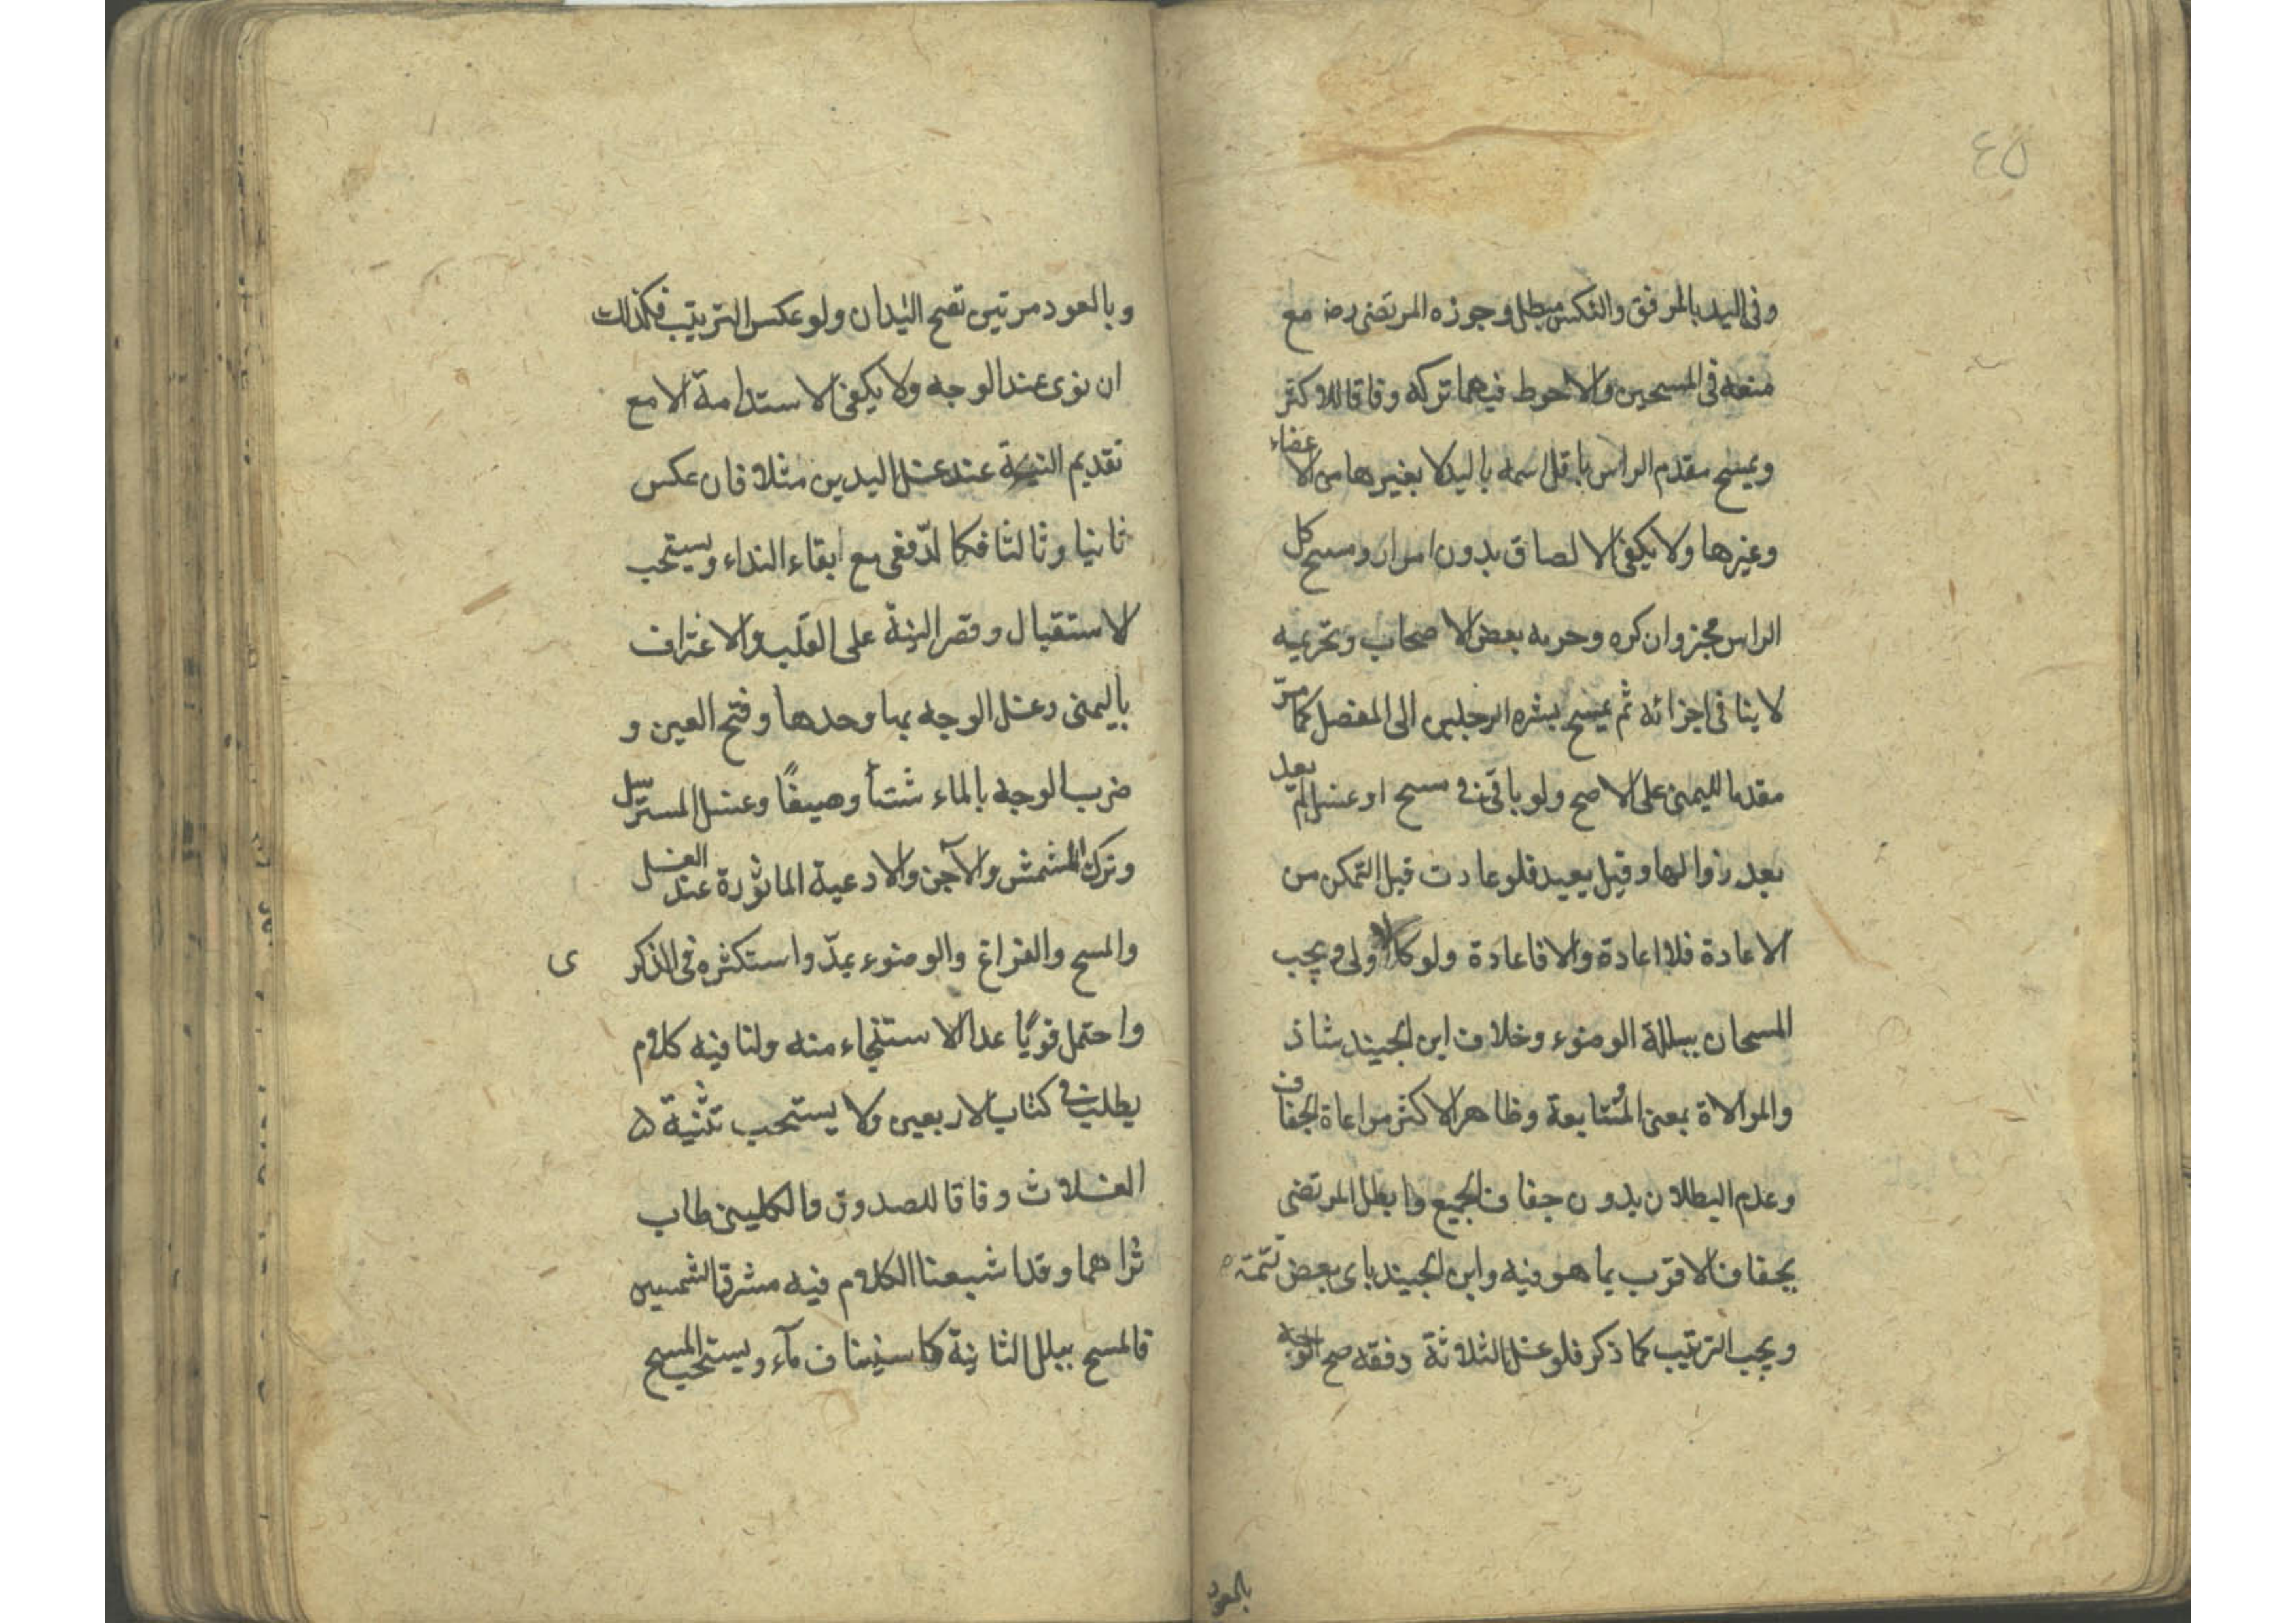 ٤٥
وفي اليد بالمرفق والنكس مبطل وجوزه المرتضى رضـ مع
منعه في المسحين والاحوط فيهما تركه وفاقا للاكثر
ويمسح مقدم الراس باقل اسمه باليد لا بغيرها من الاعضاء
وغيرها ولا يكفي الالصاق بدون امرار ومسح كل
الراس مجز وان كره وحرمه بعض الاصحاب وتحريمه
لا ينافي اجزائه ثم يمسح بشره الرجلين الى المفصل كما مرّ
مقدما لليمنى على الاصح ولو باقي في مسح او غسل لم يعد
بعد زوالها وقيل يعيد فلو عادت قبل التمكن من
الاعادة فلا اعادة والا فاعادة ولو كالاولى ويجب
المسحان ببللة الوضوء وخلاف ابن الجنيد شاذ
والموالاة بمعنى المتابعة وظاهر الاكثر مراعاة الجفاف
وعدم البطلان بدون جفاف الجميع وابطل المرتضى
بجفاف الاقرب يما هو فيه وابن الجنيد باي بعض تتمته
ويجب الترتيب كما ذكر فلو غسل الثلاثة دفقه صح الوجه
بالعود
وبالعود مرتين تصح اليدان ولو عكس الترتيب فكذلك
ان نوى عند الوجه ولا يكفي الاستدامة الا مع
تقديم النية عند غسل اليدين مثلا فان عكس
ثانيا وثالثا فكما لدّفعى مع ابقاء النداء ويستحب
لاستقبال وقصر النية على القلب والاغتراف
باليمنى وغسل الوجه بها وحدها وفتح العين و
ضرب الوجه بالماء شتأ وصيفًا وغسل المسترسل
وترك المشمش والآجن والادعية الماثورة عند الغسل
والمسح والفراغ والوضوء بمدّ واستكثره في الذكر
ى
واحتمل قويًا عد الاستنجاء منه ولنا فيه كلام
يطلب في كتاب الاربعين ولا يستحب تثنية ۵
الغسلات وفاقا للصدوق والكليني طاب
ثراهما وقد اشبعنا الكلام فيه مشرق الشمسين
فالمسح ببلل الثانية كاستيناف مآء ويستحب المسح